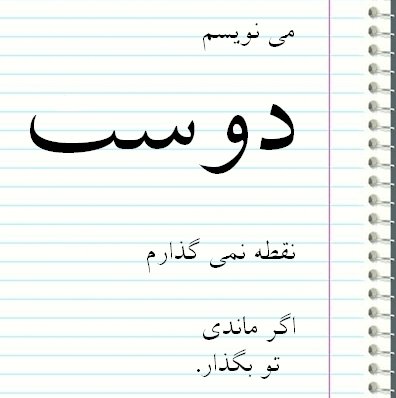 می نویسم
دوسٮ
نقطه نمی گذارم
اگر ماندی
تو بگذار.